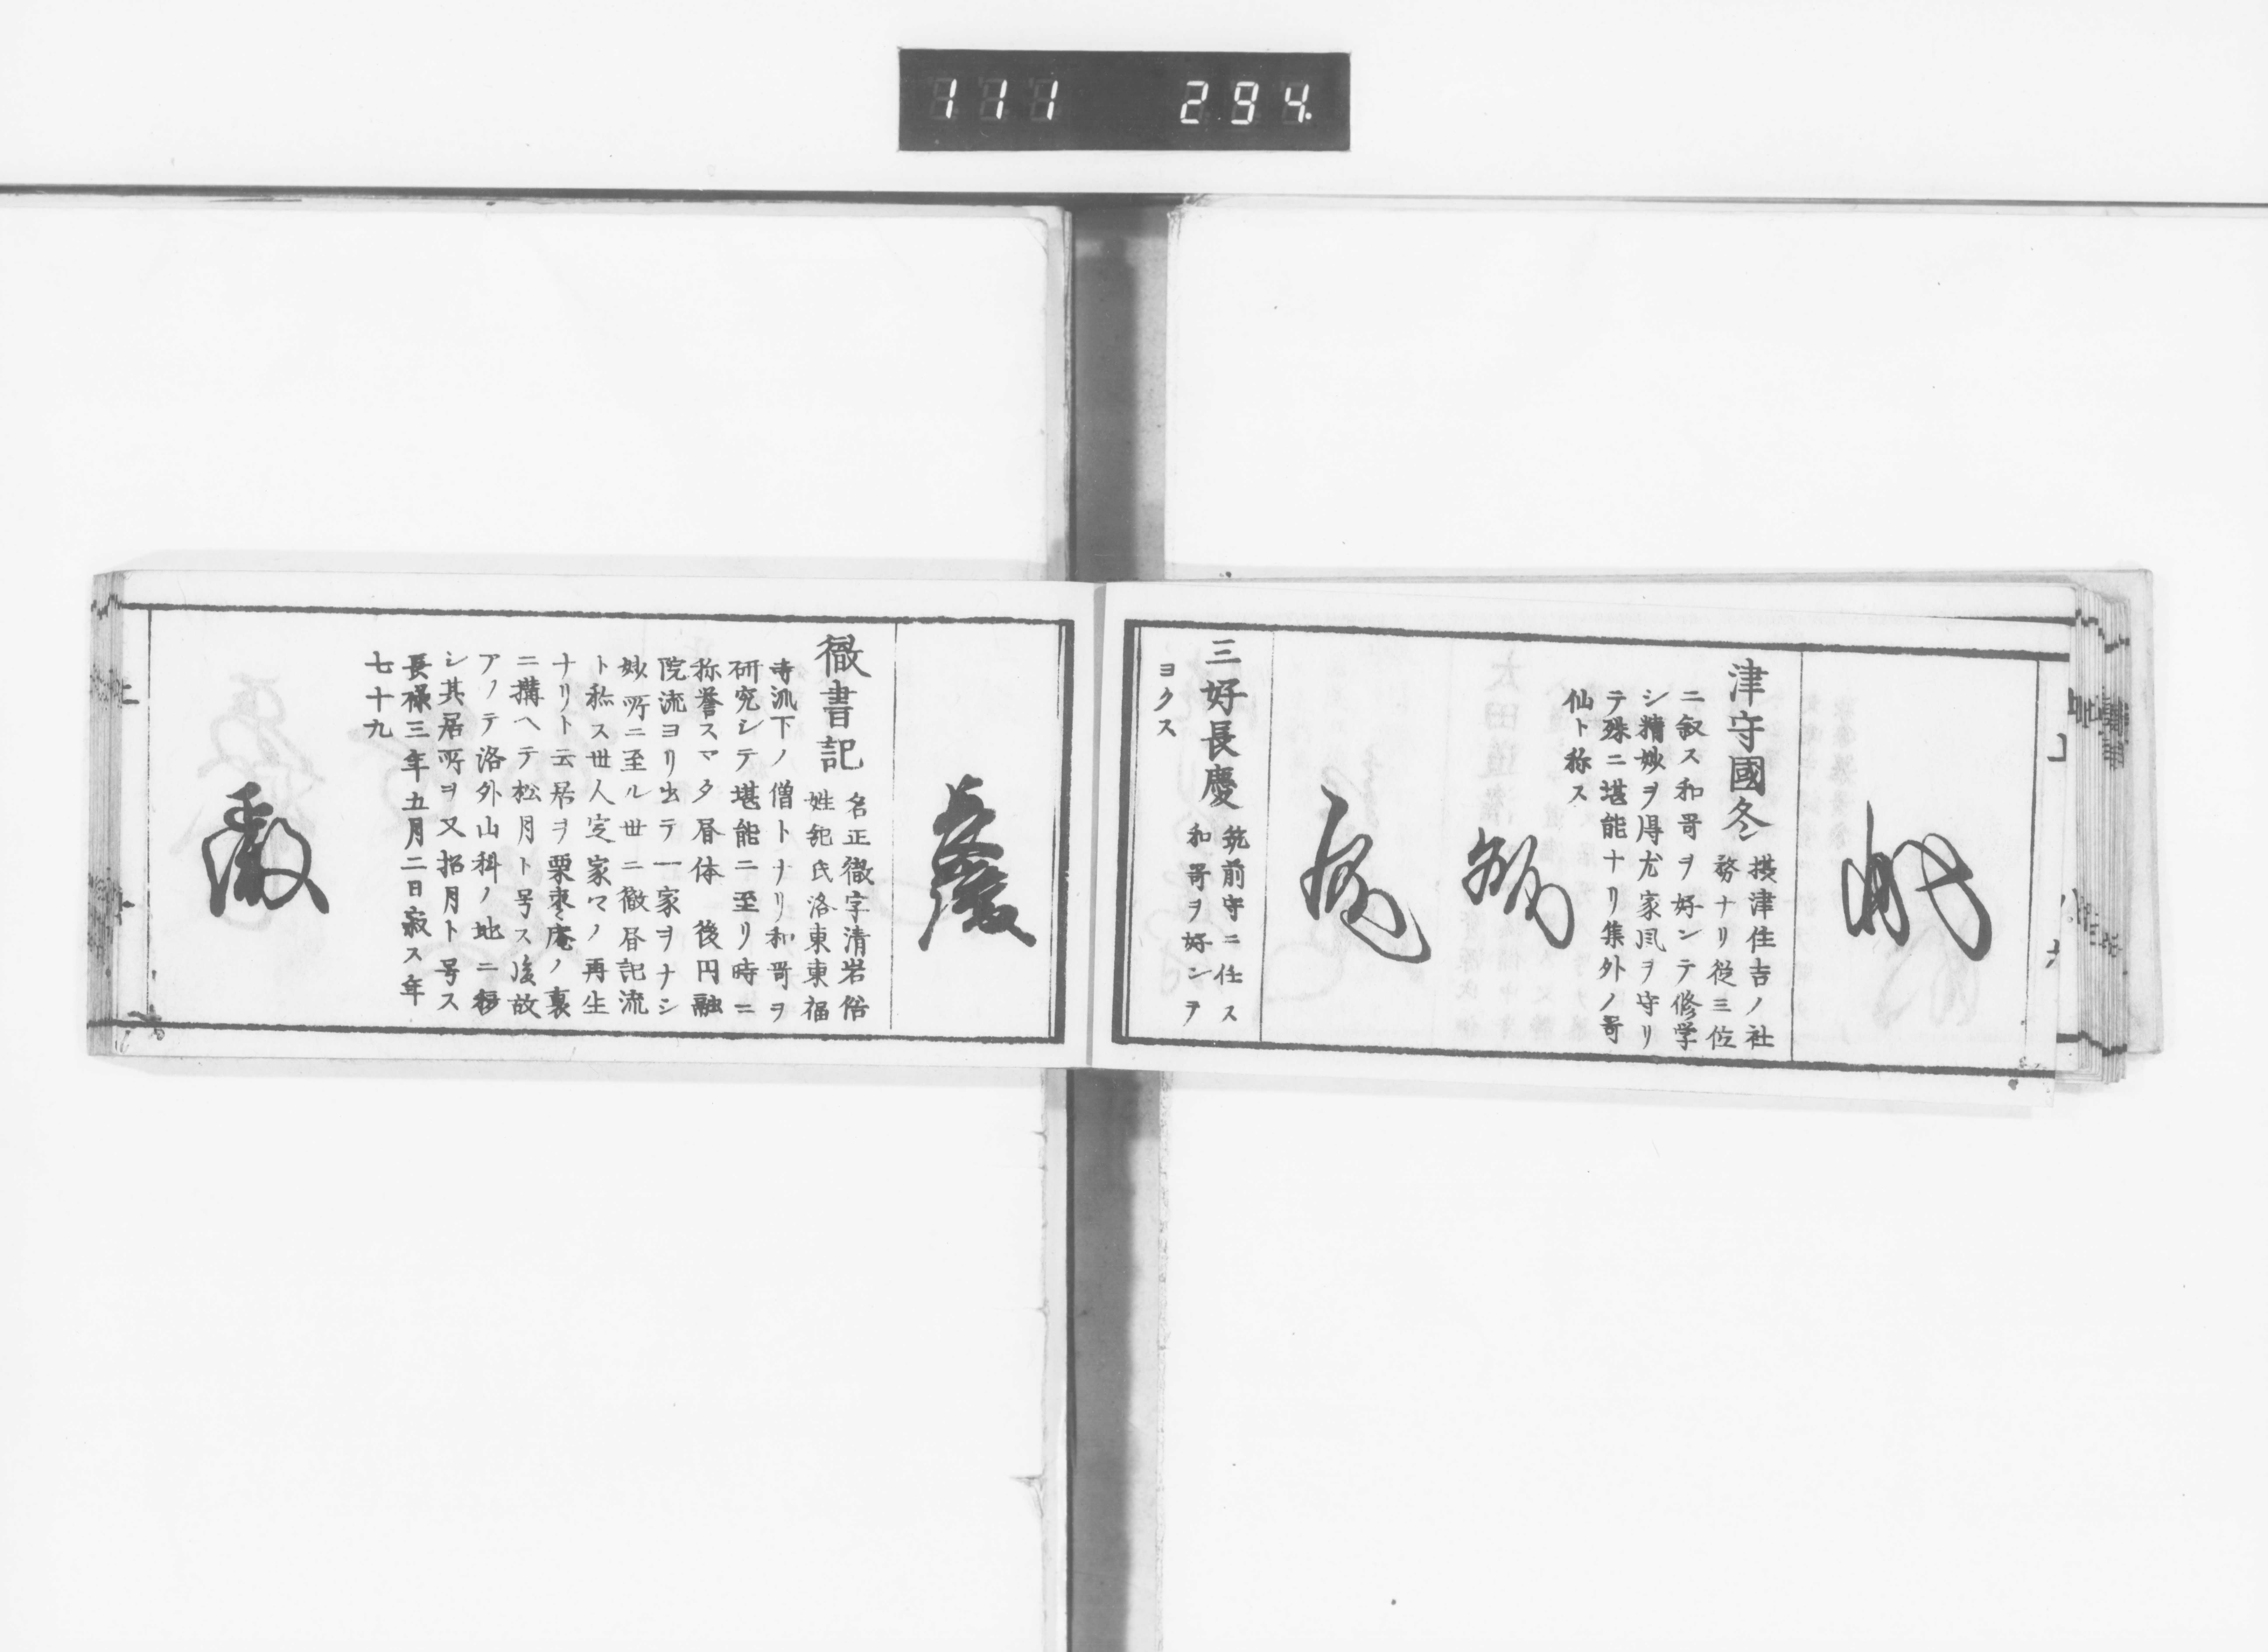 111 294.
津守國冬 摂津住吉ノ社
務ナリ従三位
ニ叙ス和哥ヲ好ンテ修学
シ精妙ヲ得尤家風ヲ守リ
テ殊ニ堪能ナリ集外ノ哥
仙ト称ス
三好長慶 筑前守ニ任ス
和哥ヲ好ンテ
ヨクス
徹書記 名正徹字清岩俗
姓紀氏洛東東福
寺派下ノ僧トナリ和哥ヲ
研究シテ堪能ニ至リ時ニ
称誉スマタ昼体 後円融
院流ヨリ出テ一家ヲナシ
妙所ニ至ル世ニ徹昼記流
ト称ス世人定家マノ再生
ナリト云居ヲ栗棗庵ノ裏
ニ搆ヘテ松月ト号ス後故
アノテ洛外山科ノ地ニ移
シ其居所ヲ又招月ト号ス
長禄三年五月二日寂ス年
七十九